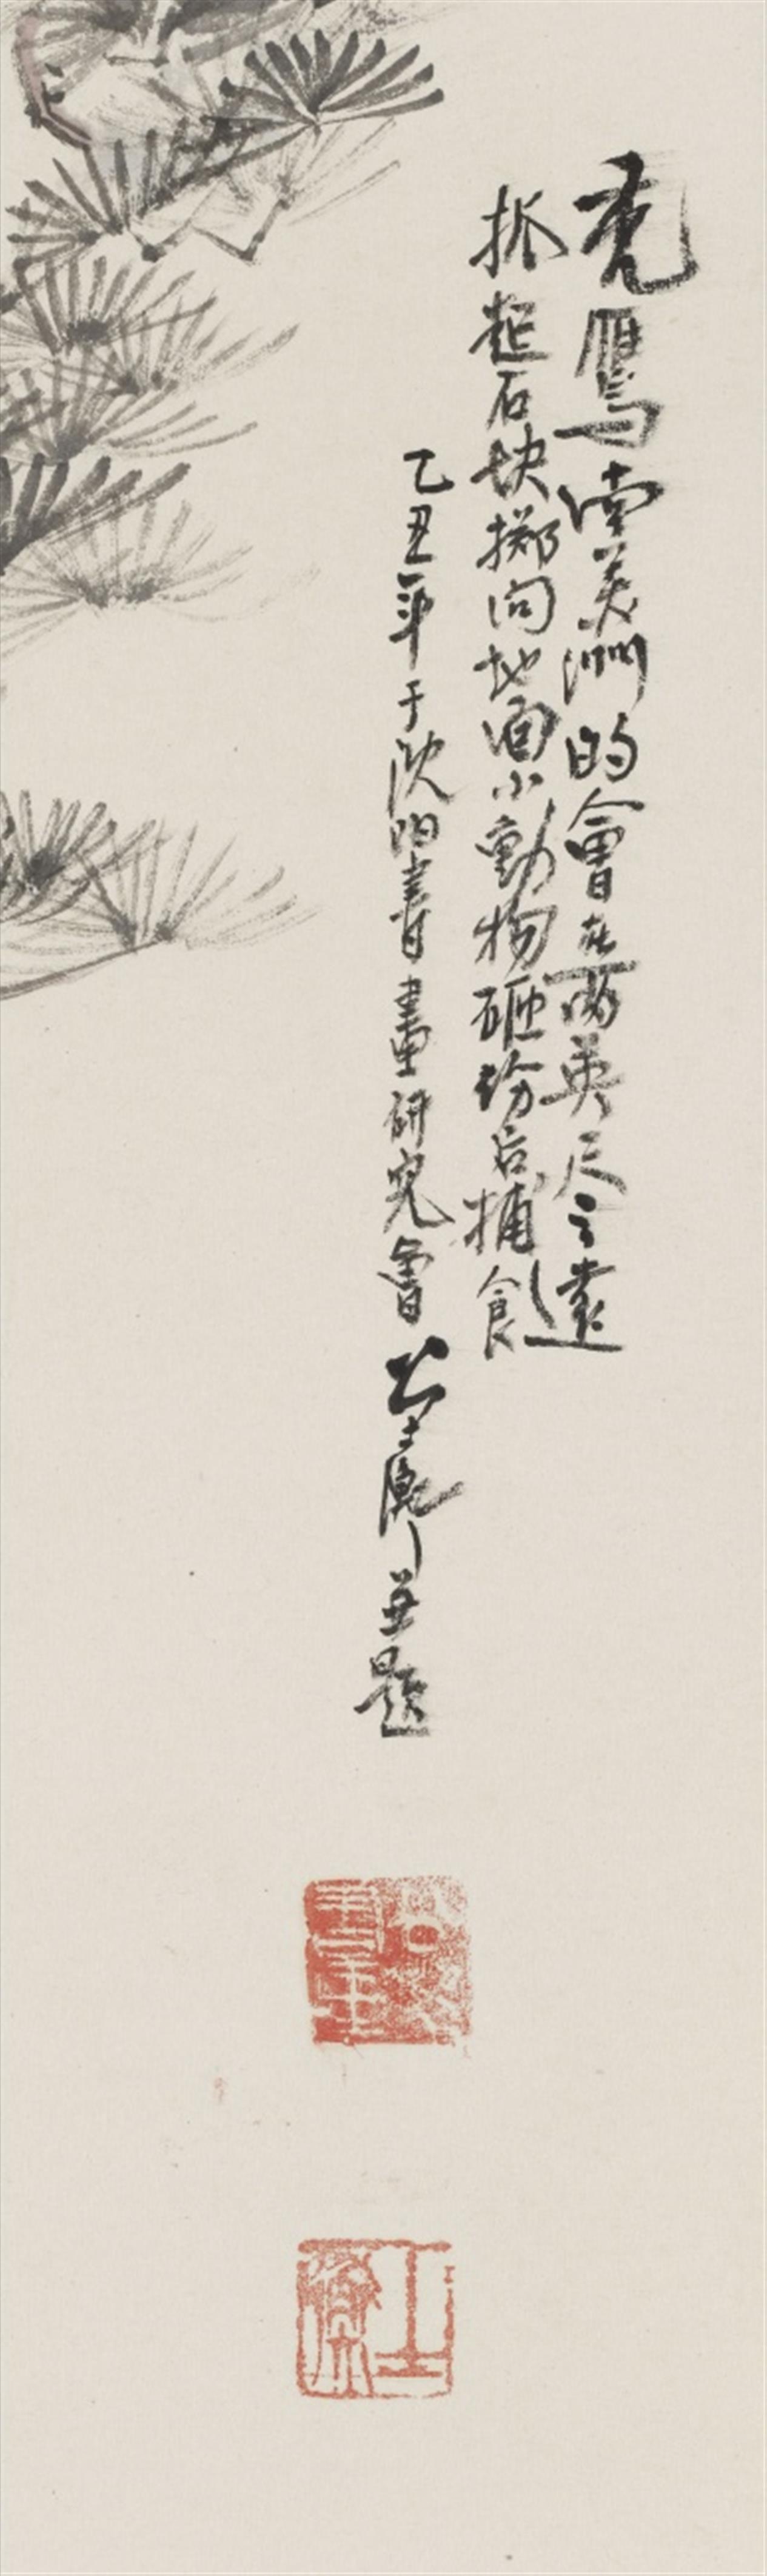 秃鷹南美洲的會在兩英尺之遠
抓起石块掷向地面小動物砸后捕食
乙丑年于沈阳書畫研究會士並題
士